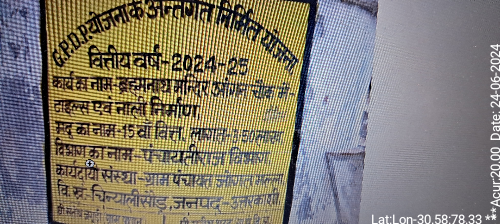 G.P.D.P. योजना के अन्तर्गत निर्मित योजना
वित्तीय वर्ष-2024-25
कार्य का नाम-ब्रहमनाथ मन्दिर आंगन चौक में
टाइल्स एवं नाली निर्माण
मद का नाम-15 वां वित्त लागत-1.50 लाख
विभाग का नाम-पंचायतीराज विभाग
कार्यदायी संस्था-ग्राम पंचायत
वि. ख. चिन्यालीसौड़, जनपद-उत्तरकाशी
Lat:Lon-30.58:78.33
Hour:20:00 Date: 24-06-2024